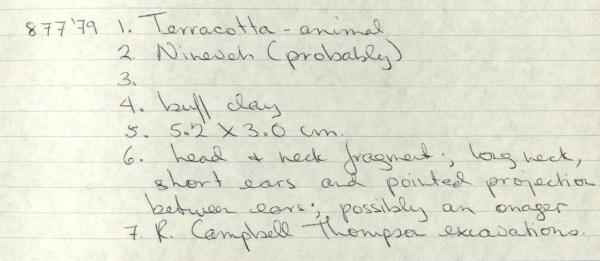 877'79 1. Terracotta - animal
2. Nineveh (probably)
3.
4. buff clay
5. 5.2 X 3.0 cm.
6. head & neck fragment; long neck,
short ears and pointed projection
between ears; possibly an onager
7. R. Campbell Thompson excavations.